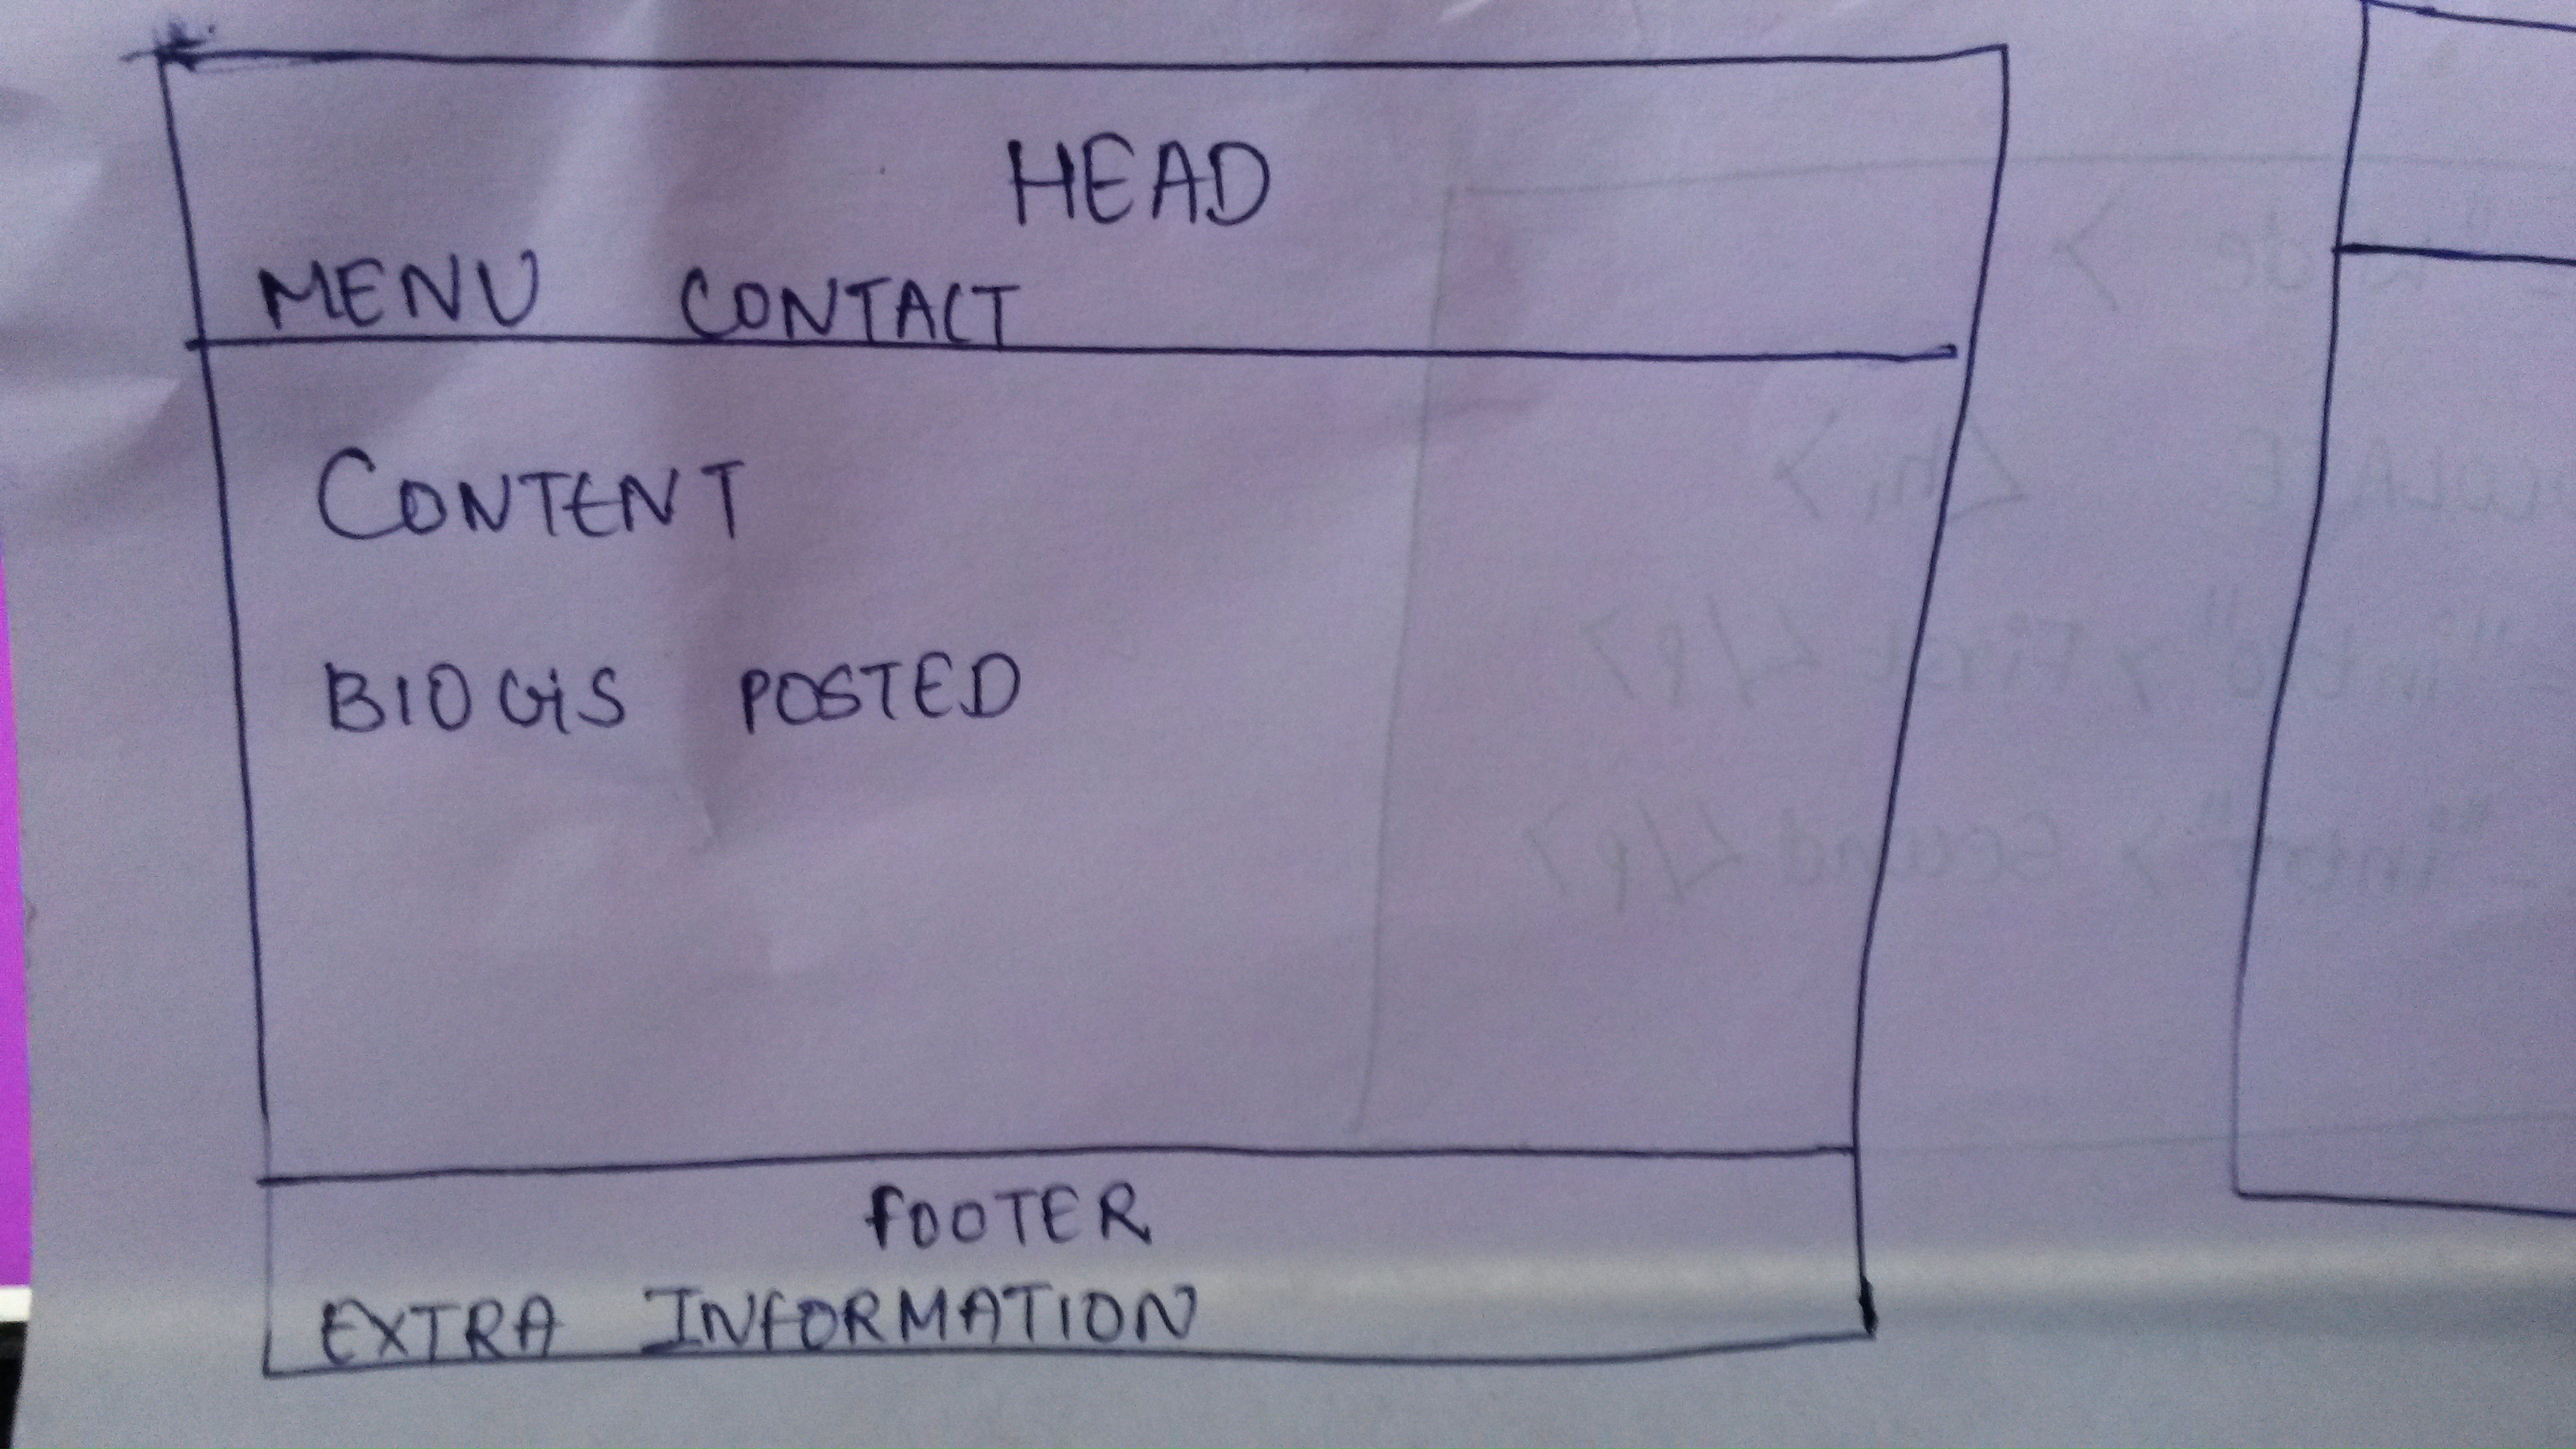 HEAD
MENU CONTACT
CONTENT
BIOGIS POSTED
FOOTER
EXTRA INFORMATION